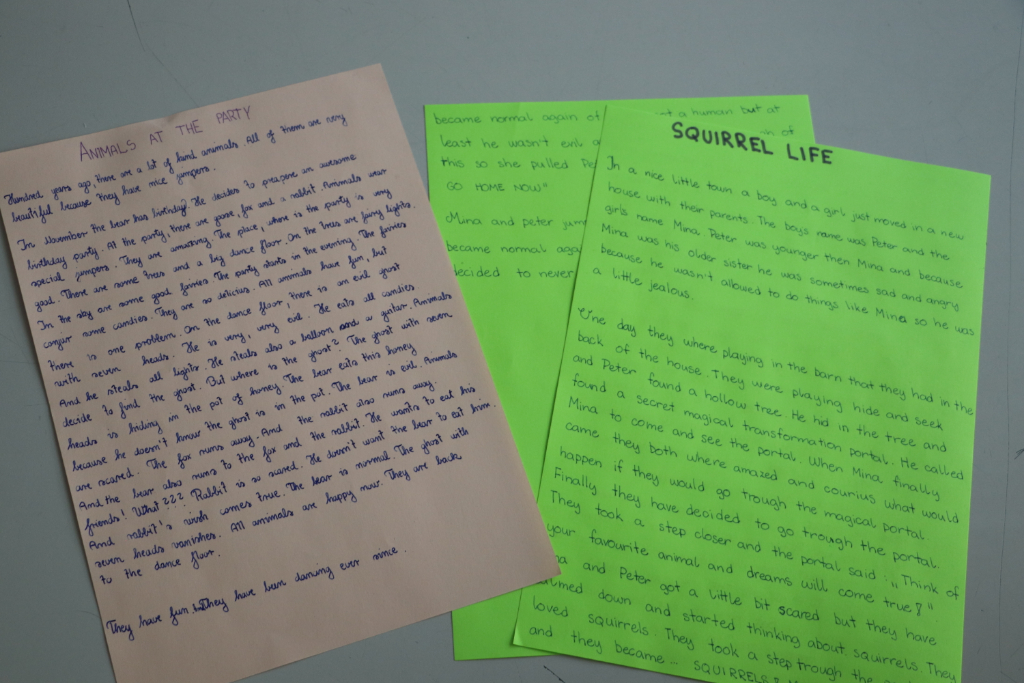 ANIMALS AT THE PARTY
Hundred years ago, there are a lot of kind animals. All of them are very
beautiful because they have nice jumpers.
In November the bear has birthday. He decides to prepare an awesome
birthday party. At the party, there are goose, fox and a rabbit. Animals wear
special jumpers. They are amazing. The place, where is the party is very
good. There are some trees and a big dance floor. On the trees are fairy lights.
In the sky are some good fairies. The party starts in the evening. The fairies
conjur some candies. They are so delicius. All animals have fun, but
there is one problem. On the dance floor, there is an evil ghost
with seven heads. He is very, very evil. He eats all candies
And he steals all lights. He steals also a balloon and a guitar. Animals
decide to find the ghost. But where is the ghost? The ghost with seven
heads is hiding in the pot of honey. The bear eats this honey
because he doesn't know the ghost is in the pot. The bear is evil. Animals
are scared. The fox runs away. And the rabbit also runs away.
And the bear also runs to the fox and the rabbit. He wants to eat his
friends! What??? Rabbit is so scared. He doesn't want the bear to eat him.
And rabbit's wish comes true. The bear is normal. The ghost with
seven heads vanishes. All animals are happy now. They are back
to the dance floor.
They have fun. They have been dancing ever since.
became normal again of a human but at
least he wasn't evil of
this so she pulled Pe
GO HOME NOW"
Mina and peter jum
became normal agai
decided to never
SQUIRREL LIFE
In a nice little town a boy and a girl just moved in a new
house with their parents. The boys name was Peter and the
girls name Mina. Peter was younger then Mina and because
Mina was his older sister he was sometimes sad and angry
because he wasn't allowed to do things like Mina so he was
a little jealous.
One day they where playing in the barn that they had in the
back of the house. They were playing hide and seek
and Peter found a hollow tree. He hid in the tree and
found a secret magical transformation portal. He called
Mina to come and see the portal. When Mina finally
came they both where amazed and courius what would
happen if they would go trough the magical portal.
Finally they have decided to go trough the portal.
They took a step closer and the portal said: „Think of
your favourite animal and dreams will come true!"
a and Peter got a little bit scared but they have
lmed down and started thinking about squirrels. They
loved squirrels. They took a step trough the
and they became... SQUIRRELS!